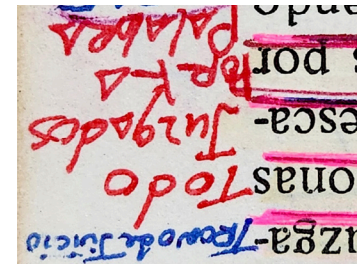 uzga- Trono de Juicio
onas Todo
esca- Juzgados
s por Por La
Palabra